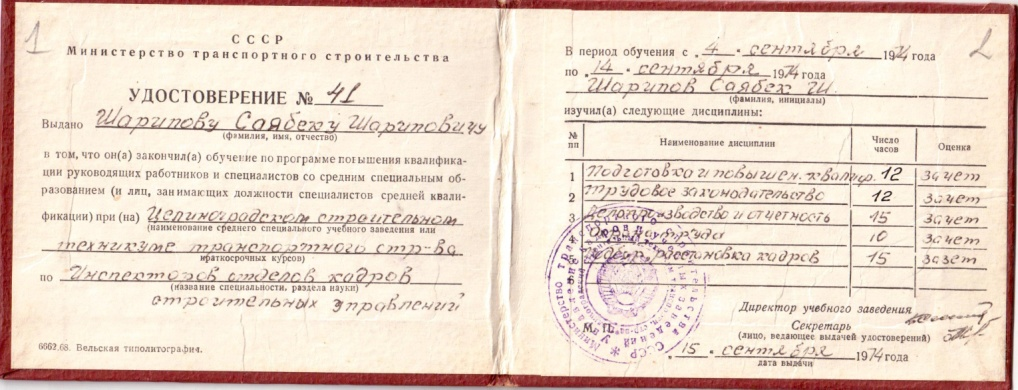 1
СССР
Министерство транспортного строительства
УДОСТОВЕРЕНИЕ № 41
Выдано Шарипову Саябеку Шариповичу
(фамилия, имя, отчество)
в том, что он(а) закончил(а) обучение по программе повышения квалифика-
ции руководящих работников и специалистов со средним специальным об-
разованием (и лиц, занимающих должности специалистов средней квали-
фикации) при (на) Целиноградском строительном
(наименование среднего специального учебного заведения или
техникуме транспортного стр-ва
краткосрочных курсов)
по Инспекторов отделов кадров
(название специальности, раздела науки)
строительных управлений
6662.68. Вельская типолитография.
2
В период обучения с 4 . сентября 1974 года
по 14 . сентября 1974 года
Шарипов Саябек Ш.
(фамилия, инициалы)
изучил(а) следующие дисциплины:
№ пп Наименование дисциплин Число часов Оценка
1 Подготовка и повышен. квалиф. 12 зачет
2 трудовое законодательство 12 зачет
3 Делопроизводство и отчетность 15 зачет
Охрана труда 10 зачет
Подбор, расстановка кадров 15 зачет
Директор учебного заведения
Секретарь
(лицо, ведающее выдачей удостоверений)
М. П.
15 . сентября 1974 года
дата выдачи